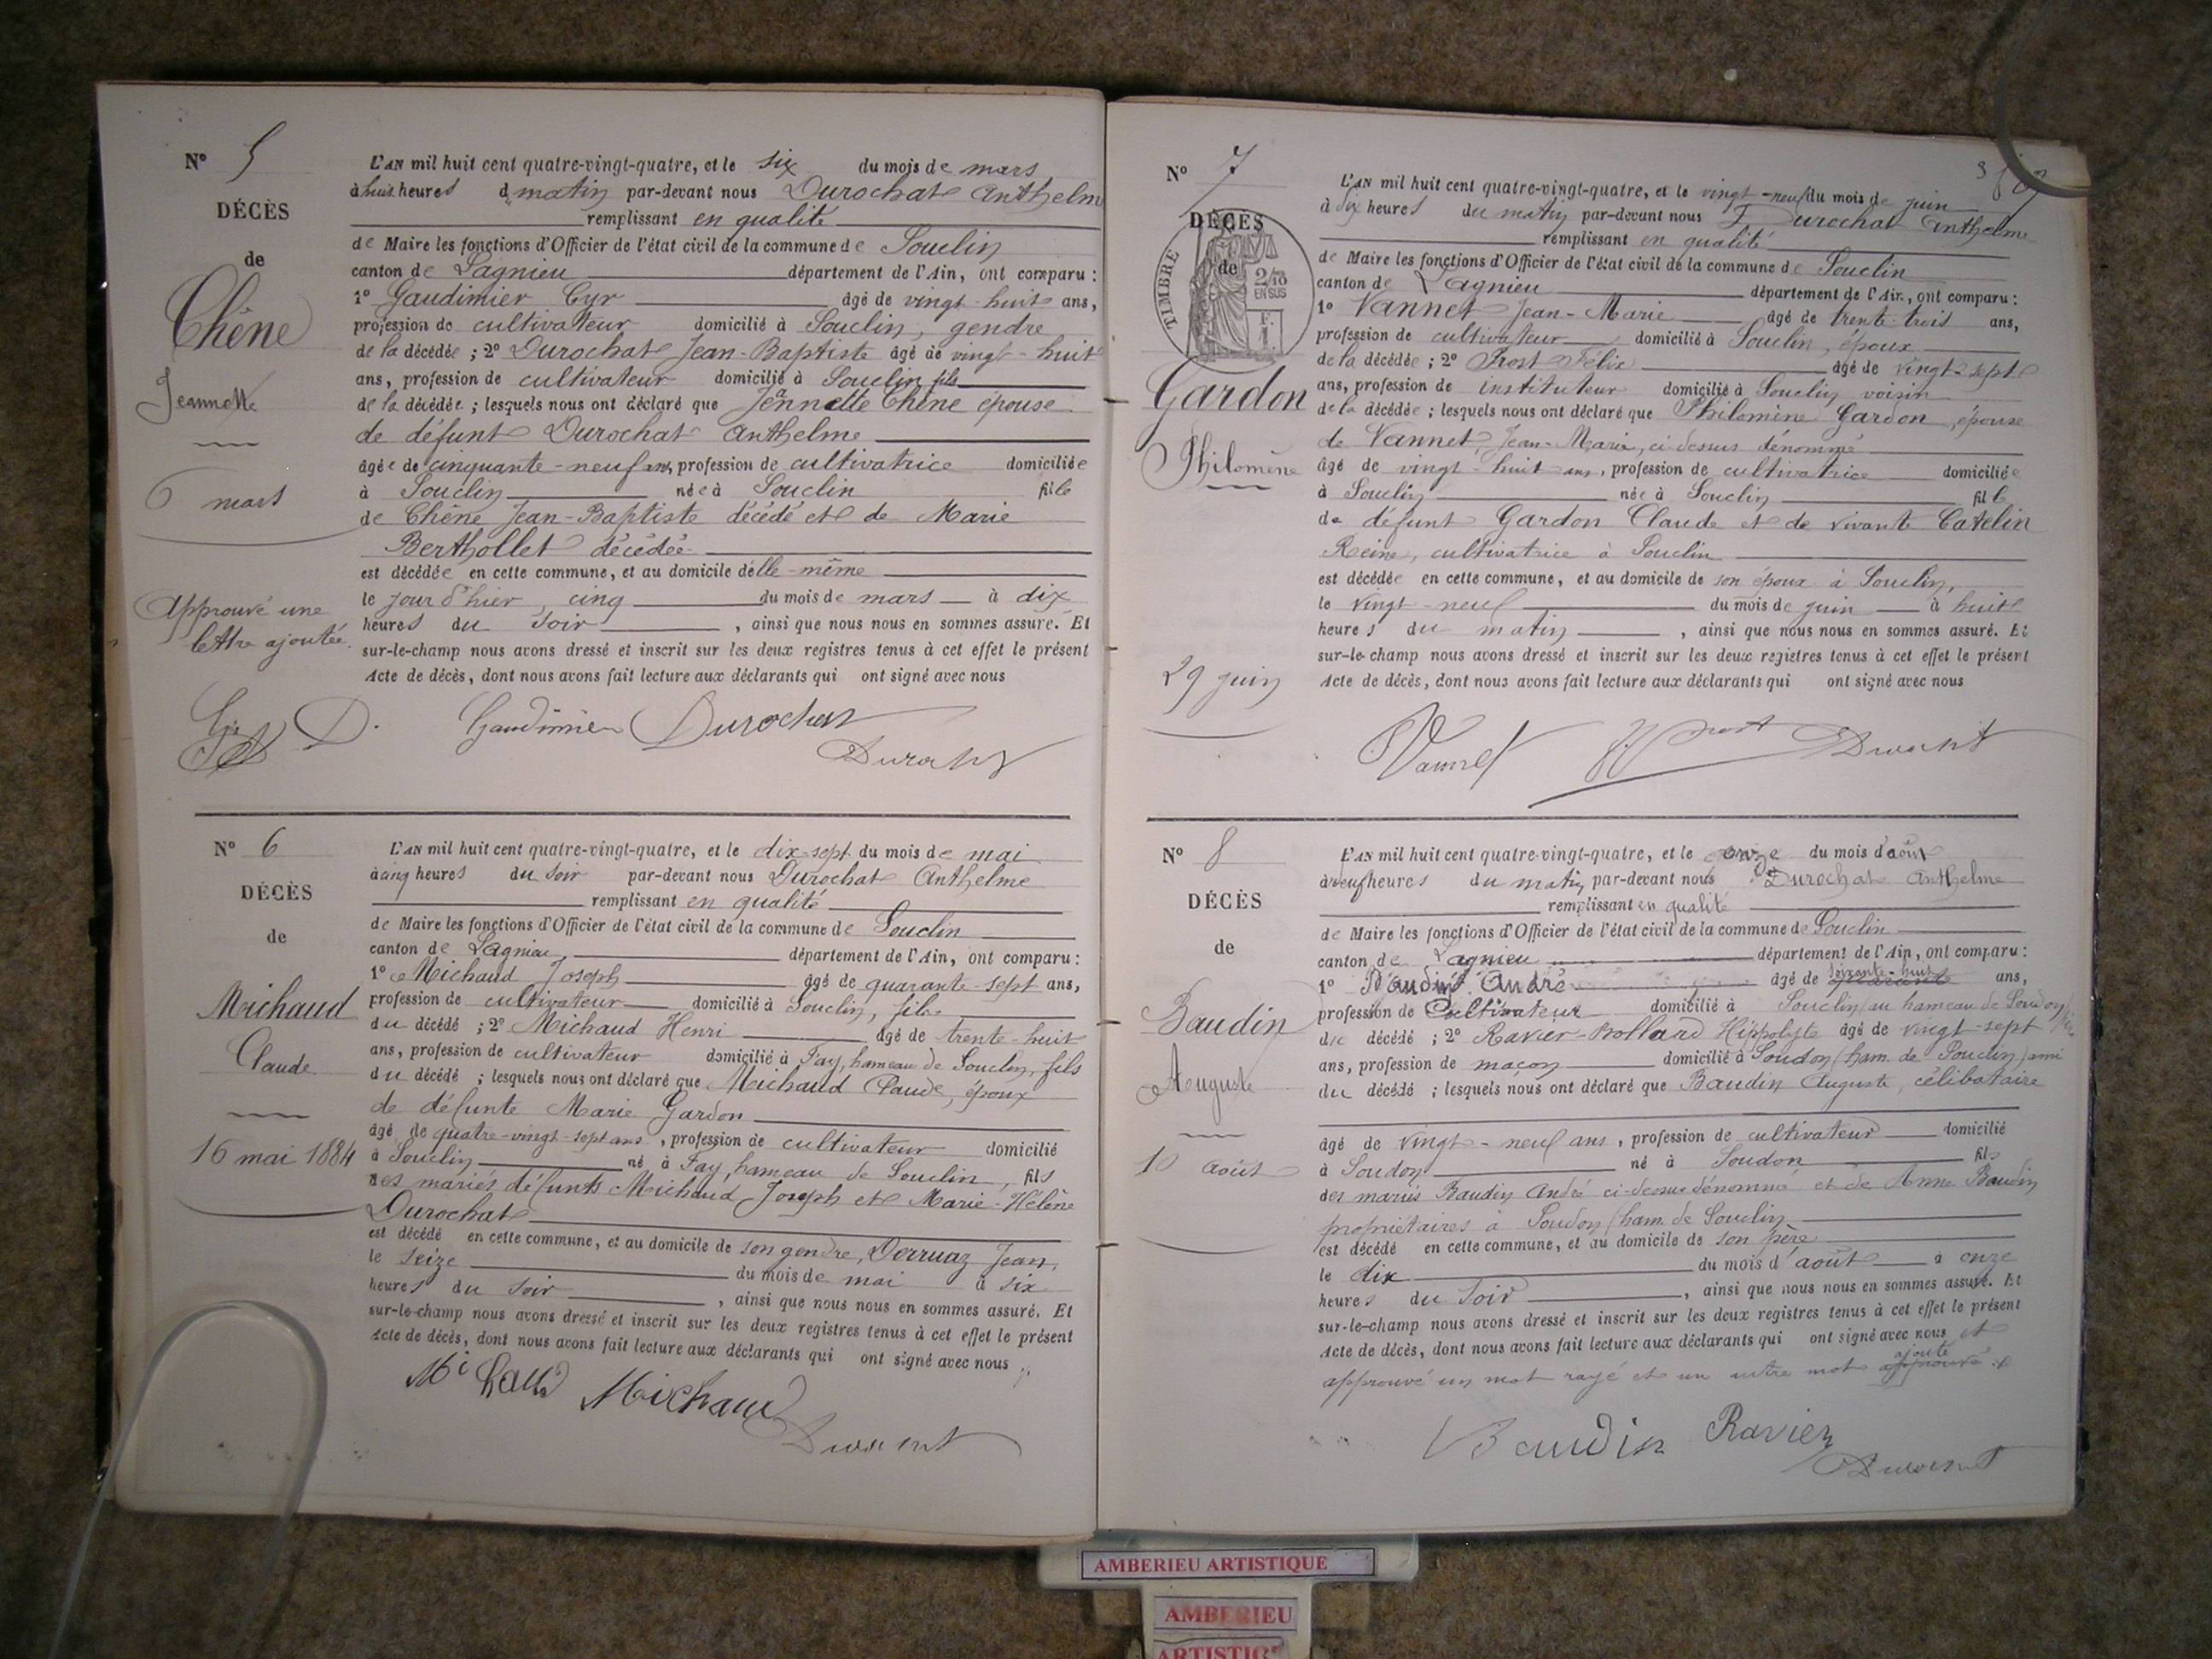 N° 5
DÉCÈS
de
Chêne
Jeannette
6 mars
Approuvé une
lettre ajoutée.
L'AN mil huit cent quatre-vingt-quatre, et le six du mois de mars
à huit heures du matin par-devant nous Durochat Anthelme
remplissant en qualité
de Maire les fonctions d'Officier de l'état civil de la commune de Souclin
canton de Lagnieu département de l'Ain, ont comparu :
1° Gaudimier Cyr âgé de vingt-huit ans,
profession de cultivateur domicilié à Souclin, gendre
de la décédée ; 2° Durochat Jean-Baptiste âgé de vingt-huit
ans, profession de cultivateur domicilié à Souclin fils
de la décédée ; lesquels nous ont déclaré que Jeannette Chêne épouse
de défunt Durochat Anthelme
âgée de cinquante-neuf ans, profession de cultivatrice domiciliée
à Souclin née à Souclin fille
de Chêne Jean-Baptiste décédé et de Marie
Berthollet décédée
est décédée en cette commune, et au domicile d'elle-même
le jour d'hier, cinq du mois de mars à dix
heures du soir, ainsi que nous nous en sommes assuré. Et
sur-le-champ nous avons dressé et inscrit sur les deux registres tenus à cet effet le présent
Acte de décès, dont nous avons fait lecture aux déclarants qui ont signé avec nous
D. Gaudimier Durochat
Durochat
N° 6
DÉCÈS
de
Michaud
Claude
16 mai 1884
L'AN mil huit cent quatre-vingt-quatre, et le dix-sept du mois de mai
à cinq heures du soir par-devant nous Durochat Anthelme
remplissant en qualité
de Maire les fonctions d'Officier de l'état civil de la commune de Souclin
canton de Lagnieu département de l'Ain, ont comparu :
1° Michaud Joseph âgé de quarante-sept ans,
profession de cultivateur domicilié à Souclin, fils
du décédé ; 2° Michaud Henri âgé de trente-huit
ans, profession de cultivateur domicilié à Fay, hameau de Souclin, fils
du décédé ; lesquels nous ont déclaré que Michaud Claude, époux
de défunte Marie Gardon
âgé de quatre-vingt-sept ans, profession de cultivateur domicilié
à Souclin né à Fay, hameau de Souclin, fils
des mariés défunts Michaud Joseph et Marie-Hélène
Durochat
est décédé en cette commune, et au domicile de son gendre, Derruaz Jean,
le seize du mois de mai à six
heures du soir, ainsi que nous nous en sommes assuré. Et
sur-le-champ nous avons dressé et inscrit sur les deux registres tenus à cet effet le présent
Acte de décès, dont nous avons fait lecture aux déclarants qui ont signé avec nous
Michaud Michaud
Durochat
N° 7
DÉCÈS
de
TIMBRE
2/10
EN SUS
F.
1.
Gardon
Philomène
29 juin
L'AN mil huit cent quatre-vingt-quatre, et le vingt-neuf du mois de juin
à dix heures du matin par-devant nous Durochat Anthelme
remplissant en qualité
de Maire les fonctions d'Officier de l'état civil de la commune de Souclin
canton de Lagnieu département de l'Ain, ont comparu :
1° Vannet Jean-Marie âgé de trente-trois ans,
profession de cultivateur domicilié à Souclin, époux
de la décédée ; 2° Prost Félix âgé de vingt-sept
ans, profession de instituteur domicilié à Souclin voisin
de la décédée ; lesquels nous ont déclaré que Philomène Gardon, épouse
de Vannet, Jean-Marie, ci-dessus dénommé
âgé de vingt-huit ans, profession de cultivatrice domiciliée
à Souclin née à Souclin fille
de défunt Gardon Claude et de vivante Catelin
Reine, cultivatrice à Souclin
est décédée en cette commune, et au domicile de son époux à Souclin,
le vingt-neuf du mois de juin à huit
heures du matin, ainsi que nous nous en sommes assuré. Et
sur-le-champ nous avons dressé et inscrit sur les deux registres tenus à cet effet le présent
Acte de décès, dont nous avons fait lecture aux déclarants qui ont signé avec nous
Vannet Prost Durochat
N° 8
DÉCÈS
de
Baudin
Auguste
10 août
L'AN mil huit cent quatre-vingt-quatre, et le onze du mois d'août
à neuf heures du matin par-devant nous Durochat Anthelme
remplissant en qualité
de Maire les fonctions d'Officier de l'état civil de la commune de Souclin
canton de Lagnieu département de l'Ain, ont comparu :
1° Baudin André âgé de soixante-huit ans,
profession de Cultivateur domicilié à Souclin (au hameau de Soudon)
du décédé ; 2° Ravier-Bollard Hippolyte âgé de vingt-sept
ans, profession de maçon domicilié à Soudon (ham. de Souclin) ami
du décédé ; lesquels nous ont déclaré que Baudin Auguste, célibataire
âgé de vingt-neuf ans, profession de cultivateur domicilié
à Soudon né à Soudon fils
des mariés Baudin André ci-dessus dénommé et de Anne Baudin
propriétaires à Soudon (ham. de Souclin
est décédé en cette commune, et au domicile de son père
le dix du mois d'août à onze
heures du soir, ainsi que nous nous en sommes assuré. Et
sur-le-champ nous avons dressé et inscrit sur les deux registres tenus à cet effet le présent
Acte de décès, dont nous avons fait lecture aux déclarants qui ont signé avec nous et
approuvé un mot rayé et un autre mot ajouté
Baudin Ravier
Durochat
AMBERIEU ARTISTIQUE
AMBERIEU
ARTISTIQUE